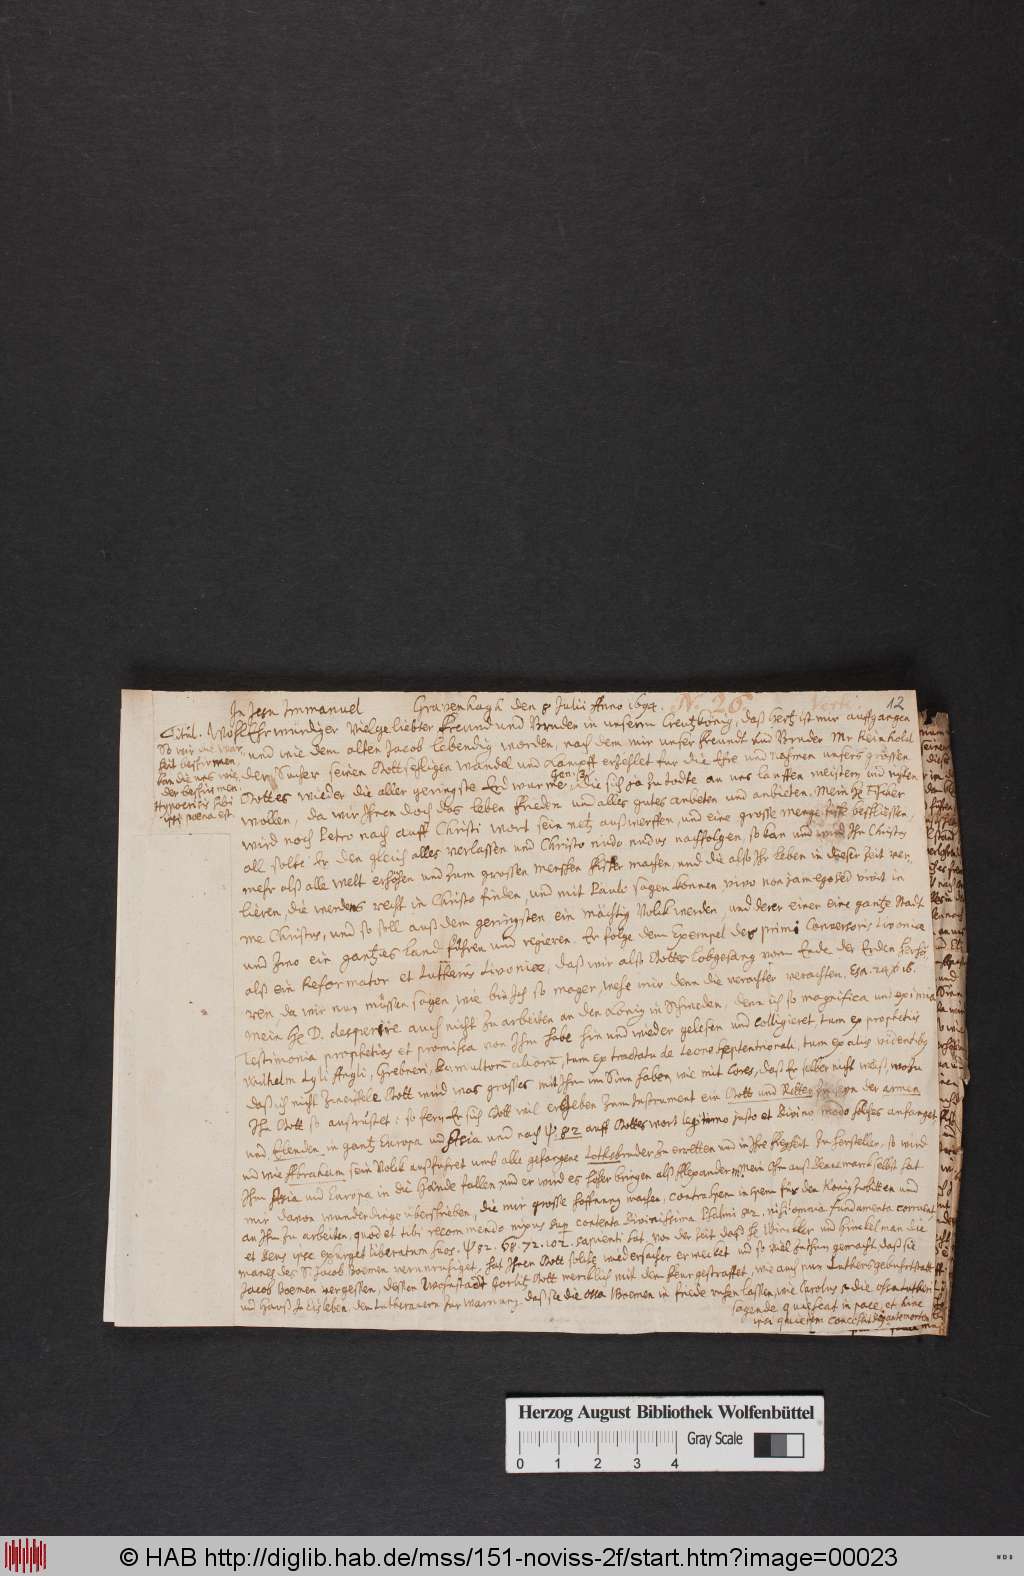 In Jesu Immanuel Gravenhagh den 8 Julii Anno 1694. N. 26 12
Titul. WohlEhrwürdiger Vielgeliebter Freund und Bruder in unserm Creutzkönig, daß hertz ist mir auffgangen
und wie dem alten Jacob lebendig worden, nach dem mir unser freundt und Bruder Mr Reinhold
der Sunser seinen Gottseligen Wandel und Kampff erzehlet für die Ehre und Nahmen unsers grossen
Gottes wieder die aller geringste Erd wurme, Gen. 3. die sich ja zu todte an uns lauffen
wollen, da wir Ihnen doch das leben frieden und alles gutes anbeten und anbieten. Mein He
wird noch Petro nach auff Christi wort sein netz außwerffen, und eine grosse menge beschliessen,
all solte Er den gleich alles verlassen und Christo nudo nudus nachfolgen, so kan und wird Ihn Christus
mehr alß alle welt erhöhen und zum grossen menschen fischer machen und die also Ihr leben in dieser Zeit ver-
lieren, die werdens recht in Christo finden, und mit Paulo sagen können vivo non jam ego sed vivit in
me Christus, und so soll auß dem geringsten ein mächtig Volk werden, und derer einer eine gantze Stadt
und Imo ein gantzes land führen und regieren. Er folge dem Exempel des primi Conversoris Livoniæ
alß ein Reformator et Lutherus Livoniæ, daß wir alß Gottes lobgesang vom Ende der Erden
ren da wir nun müssen sagen, wie bin Ich so mager, wehe mir denn die verachter verachten, Esa. 24, 16.
mein He D. desperire auch nicht zu arbeiten an den König in Schweden, denn ich so magnifica und eximia
Testimonia prophetias et promissa von Ihm habe hin und wieder gelesen und colligieret tum ex prophetiis
Wilhelm Lyli Angli, Grebneri, multorum aliorum, tum ex tractatu de Leone septentrionali, tum ex aliis videntibus
daß ich nicht zweiffele Gott wird was grosses mit Ihm im Sinn haben, wie mit Cores, daß Er selber nicht weiß, wozu
Ihn Gott so außrüstet: so fern Er sich Gott wil ergeben zum Instrument ein Gott und Retter der armen
und Elenden in gantz Europa und Asia und nach ψ. 82 auff Gottes wort legitimo justo et divino modo solches anfanget
und wie Abraham sein Volck außführet umb alle gefangene Lothsbrüder zu erretten und in Ihre freyheit zu herstellen, so wird
Ihm Asia und Europa in die Hände fallen und er wird es höher bringen alß Alexander m. Mein Ohm auß Dennemarck selbst hat
mir davon wunder dinge überschrieben, die mir grosse hoffnung machen, contra spem in spem für den König zu bitten und
an Ihm zu arbeiten, quod et tibi recommendo nixus contenta divinissima Psalmi 82. nisi omnia fundamenta corruent
et Deus ipse exurget liberatum suos. ψ 82. 68. 72. 102. sapienti sat. von der Zeit daß He Winckler und Hinckel man die
manes des S. Jacob Boemen verunruhiget, hat Ihnen Gott solche wiedersacher erwecket und so viel zu thun gemacht, daß sie
Jacob Boemen vergessen, dessen Wohnstadt Görlitz Gott mercklich mit dem feur gestraffet, wie auch nur Luthers geburtstadt
und Hauß in Eisleben den Lutheranern zur warnung daß sie die ossa Boemen in friede ruhen lassen, wie Carolus 5 die ossa Lutheri
sagende quiescat in pace, et hinc
ipsi quietem concessit ante mortem
So wir die war
heit beschirmen
kan die uns wie
der beschirmen.
Hypocrisis sibi
ipsi poena est.
Herzog August Bibliothek Wolfenbüttel
Gray Scale
0 1 2 3 4
© HAB http://diglib.hab.de/mss/151-noviss-2f/start.htm?image=00023